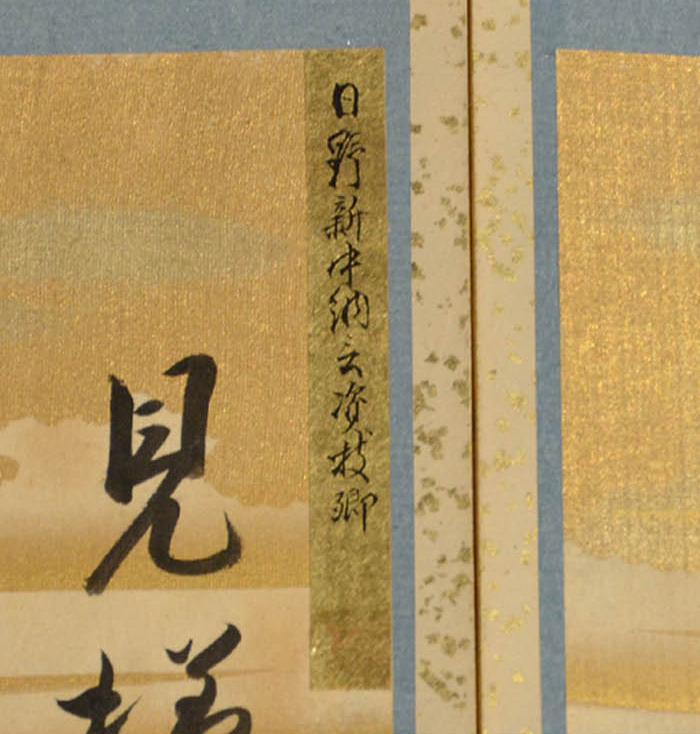 日野新中納言資枝卿
見